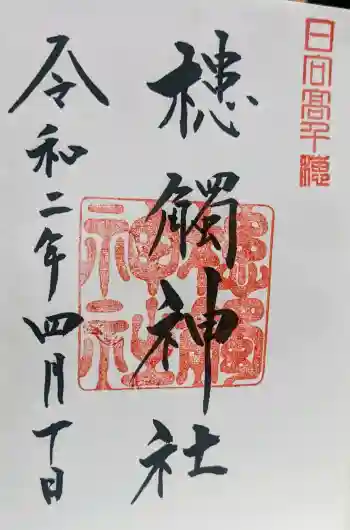 日向高千穂
槵觸神社
槵觸神社
令和二年四月十日